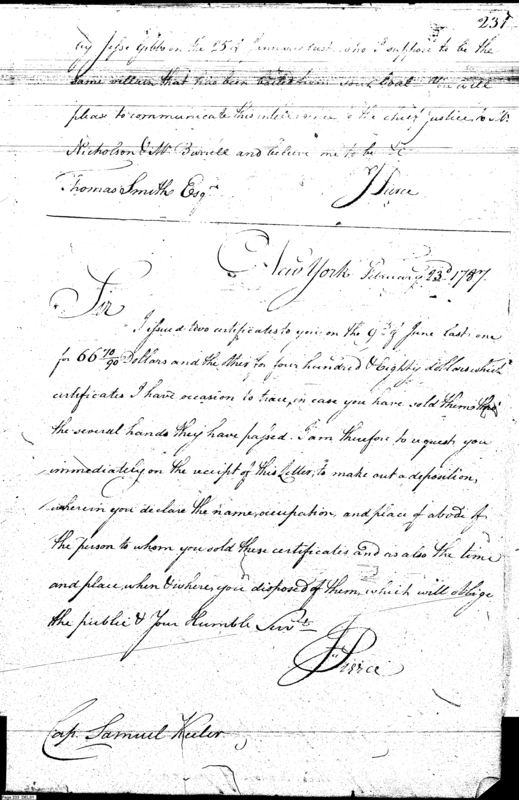 237
by Jesse Gibbs on the 25 of January last who I suppose to be the
same villain that has been
pleas to communicate this intelligence to the chief justice, to Mr
Nicholson & Mr. Burrell and believe me to be &c
Thomas Smith Esqr JPierce
New York February 23d 1787.
Sir
I issued two certificates to you on the 9th of June last one
for 66 70/90 Dollars and the other for four hundred & Eighty dollars which
certificates I have occasion to trace, in case you have sold them thro'
the several hands they have passed. I am therefore to request you
immediately on the receipt of this Letter, to make out a deposition,
wherein you declare the name, occupation and place of abode of
the person to whom you sold these certificates and as also the time
and place, when & where, you disposed of them, which will oblige
the public & Your Humble Servt
JPierce
Cap. Samuel Keeler